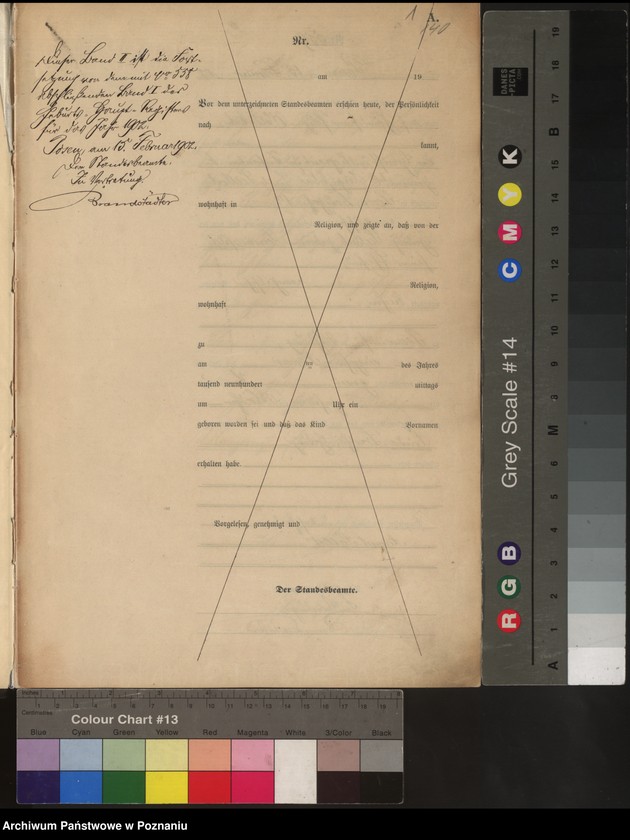 1
A.
140
Nr.
Dieser Band II ist die Fort-
setzung von dem mit Nro 538
abschließenden Bande I des
Geburts-Haupt-Registers
für das Jahr 1902.
Posen, am 15. Februar 1902.
Der Standesbeamte.
In Vertretung
Brandstädter
am 19
Vor dem unterzeichneten Standesbeamten erschien heute, der Persönlichkeit
nach
kannt,
wohnhaft in
Religion, und zeigte an, daß von der
Religion,
wohnhaft
zu
am ten des Jahres
tausend neunhundert mittags
um Uhr ein
geboren worden sei und daß das Kind Vornamen
erhalten habe.
Vorgelesen, genehmigt und
Der Standesbeamte.
DANES
PICTA
.COM
Grey Scale #14
R G B
C M Y K
A 1 2 3 4 5 6 M 8 9 10 11 12 13 14 15 B 17 18 19
Inches 1 2 3 4 5 6 7 8
Centimetres 1 2 3 4 5 6 7 8 9 10 11 12 13 14 15 16 17 18 19
Colour Chart #13
Blue Cyan Green Yellow Red Magenta White 3/Color Black
Archiwum Państwowe w Poznaniu